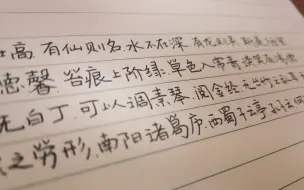 高,有仙则名,水不在深,有龙则灵
德馨.苔痕上阶绿,草色入帘青,谈笑有鸿
无白丁.可以调素琴,阅金经.无丝竹之乱
之劳形,南阳诸葛庐,西蜀子云亭,孔子云